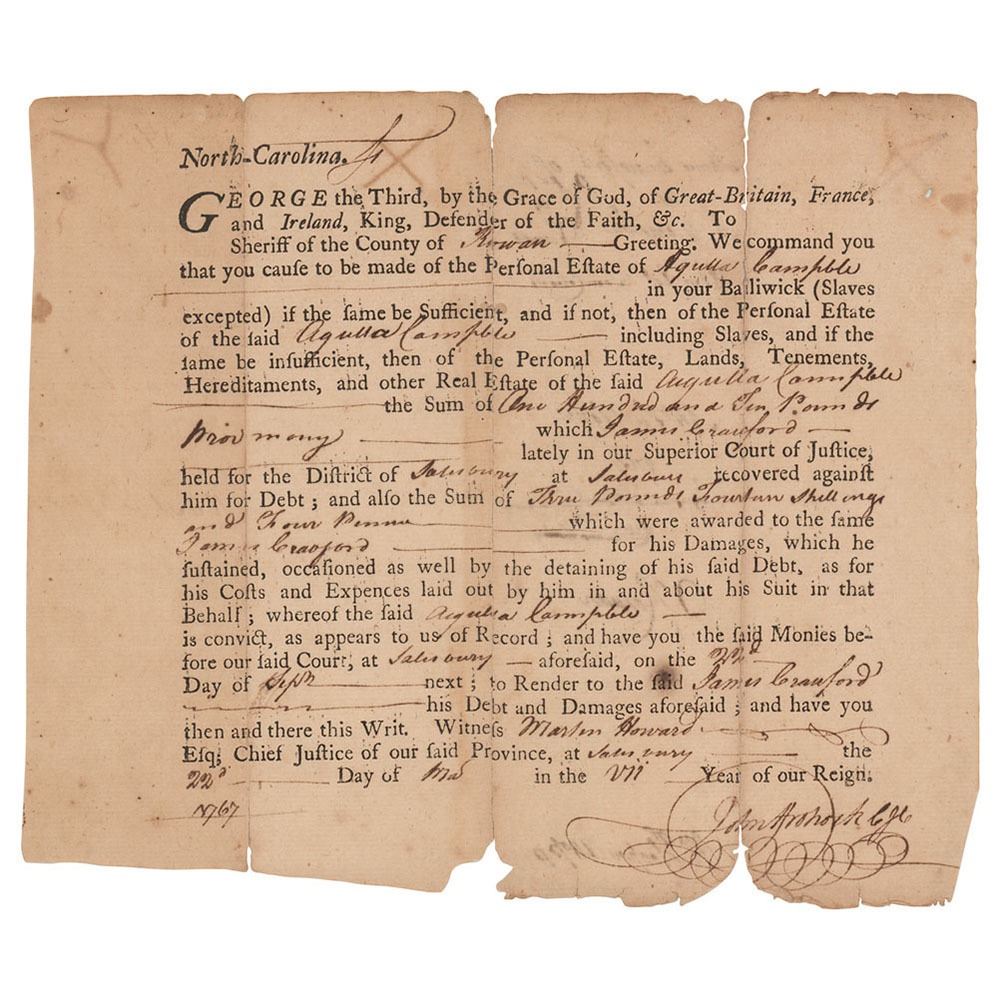 North-Carolina. ſs
GEORGE the Third, by the Grace of God, of Great-Britain, France,
and Ireland, King, Defender of the Faith, &c. To
Sheriff of the County of Rowan Greeting. We command you
that you cauſe to be made of the Perſonal Eſtate of Aqulla Campble
in your Bailiwick (Slaves
excepted) if the ſame be Sufficient, and if not, then of the Perſonal Eſtate
of the ſaid Aqulla Campble including Slaves, and if the
ſame be inſufficient, then of the Perſonal Eſtate, Lands, Tenements,
Hereditaments, and other Real Eſtate of the ſaid Aqulla Campble
the Sum of One Hundred and Ten Pounds
Prox mony which James Crauford
lately in our Superior Court of Juſtice,
held for the Diſtrict of Salesbury at Salesbury recovered againſt
him for Debt; and alſo the Sum of Three Pounds Fourteen Shillings
and Four Pence which were awarded to the ſame
James Craoford for his Damages, which he
ſuſtained, occaſioned as well by the detaining of his ſaid Debt, as for
his Coſts and Expences laid out by him in and about his Suit in that
Behalf; whereof the ſaid Aqulla Campble
is convict, as appears to us of Record; and have you the ſaid Monies be-
fore our ſaid Court, at Salesbury aforeſaid, on the 22d
Day of Sepr next; to Render to the ſaid James Crauford
his Debt and Damages aforeſaid; and have you
then and there this Writ. Witneſs Martin Howard
Eſq; Chief Juſtice of our ſaid Province, at Salesbury the
22d Day of Ma in the VII Year of our Reign.
1767
John